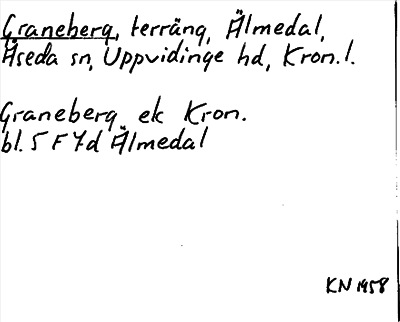 Graneberg, terräng, Älmedal,
Åseda sn, Uppvidinge hd, Kron. l.
Graneberg ek Kron.
bl. 5 F 7d Älmedal
KN 1958